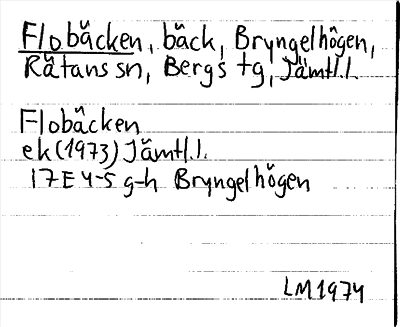 Flobäcken, bäck, Bryngelhögen,
Rätans sn, Bergs tg, Jämtl.l.
Flobäcken
ek (1973) Jämtl.l.
17E 4-5 g-h Bryngelhögen
LM 1974